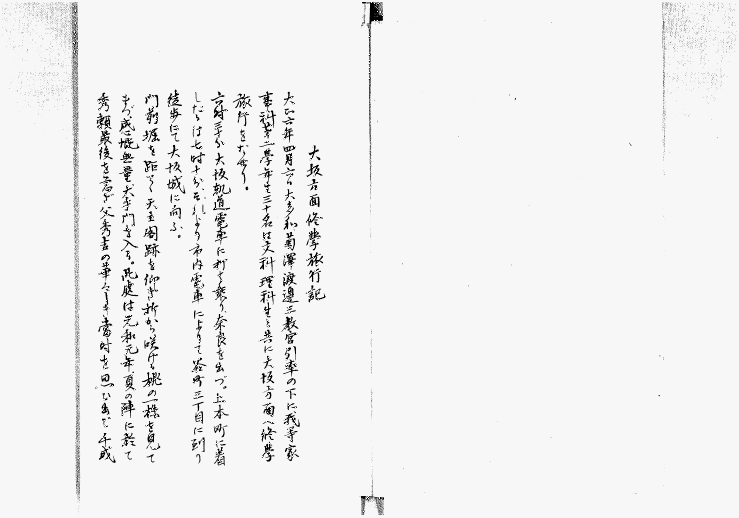 大坂方面修學旅行記
大正六年四月六日大多和菊澤渡邊三教官引率の下に我等家
事科第二學年生三十名は文科理科生と共に大坂方面へ修學
旅行をなせり。
六時三十分大坂軌道電車に打ち乗り奈良を出づ。上本町に着
したるは七時十分それより市内電車によりて谷町三丁目に到り
徒歩にて大坂城に向ふ。
門前堀を距てゝ天主閣跡を仰ぎ折から咲ける桃の一株を見て
まづ感慨無量大手門を入る。此處は元和元年夏の陣に於て
秀頼最後を遂げ父秀吉の華々しき當時を思ひ出で千成